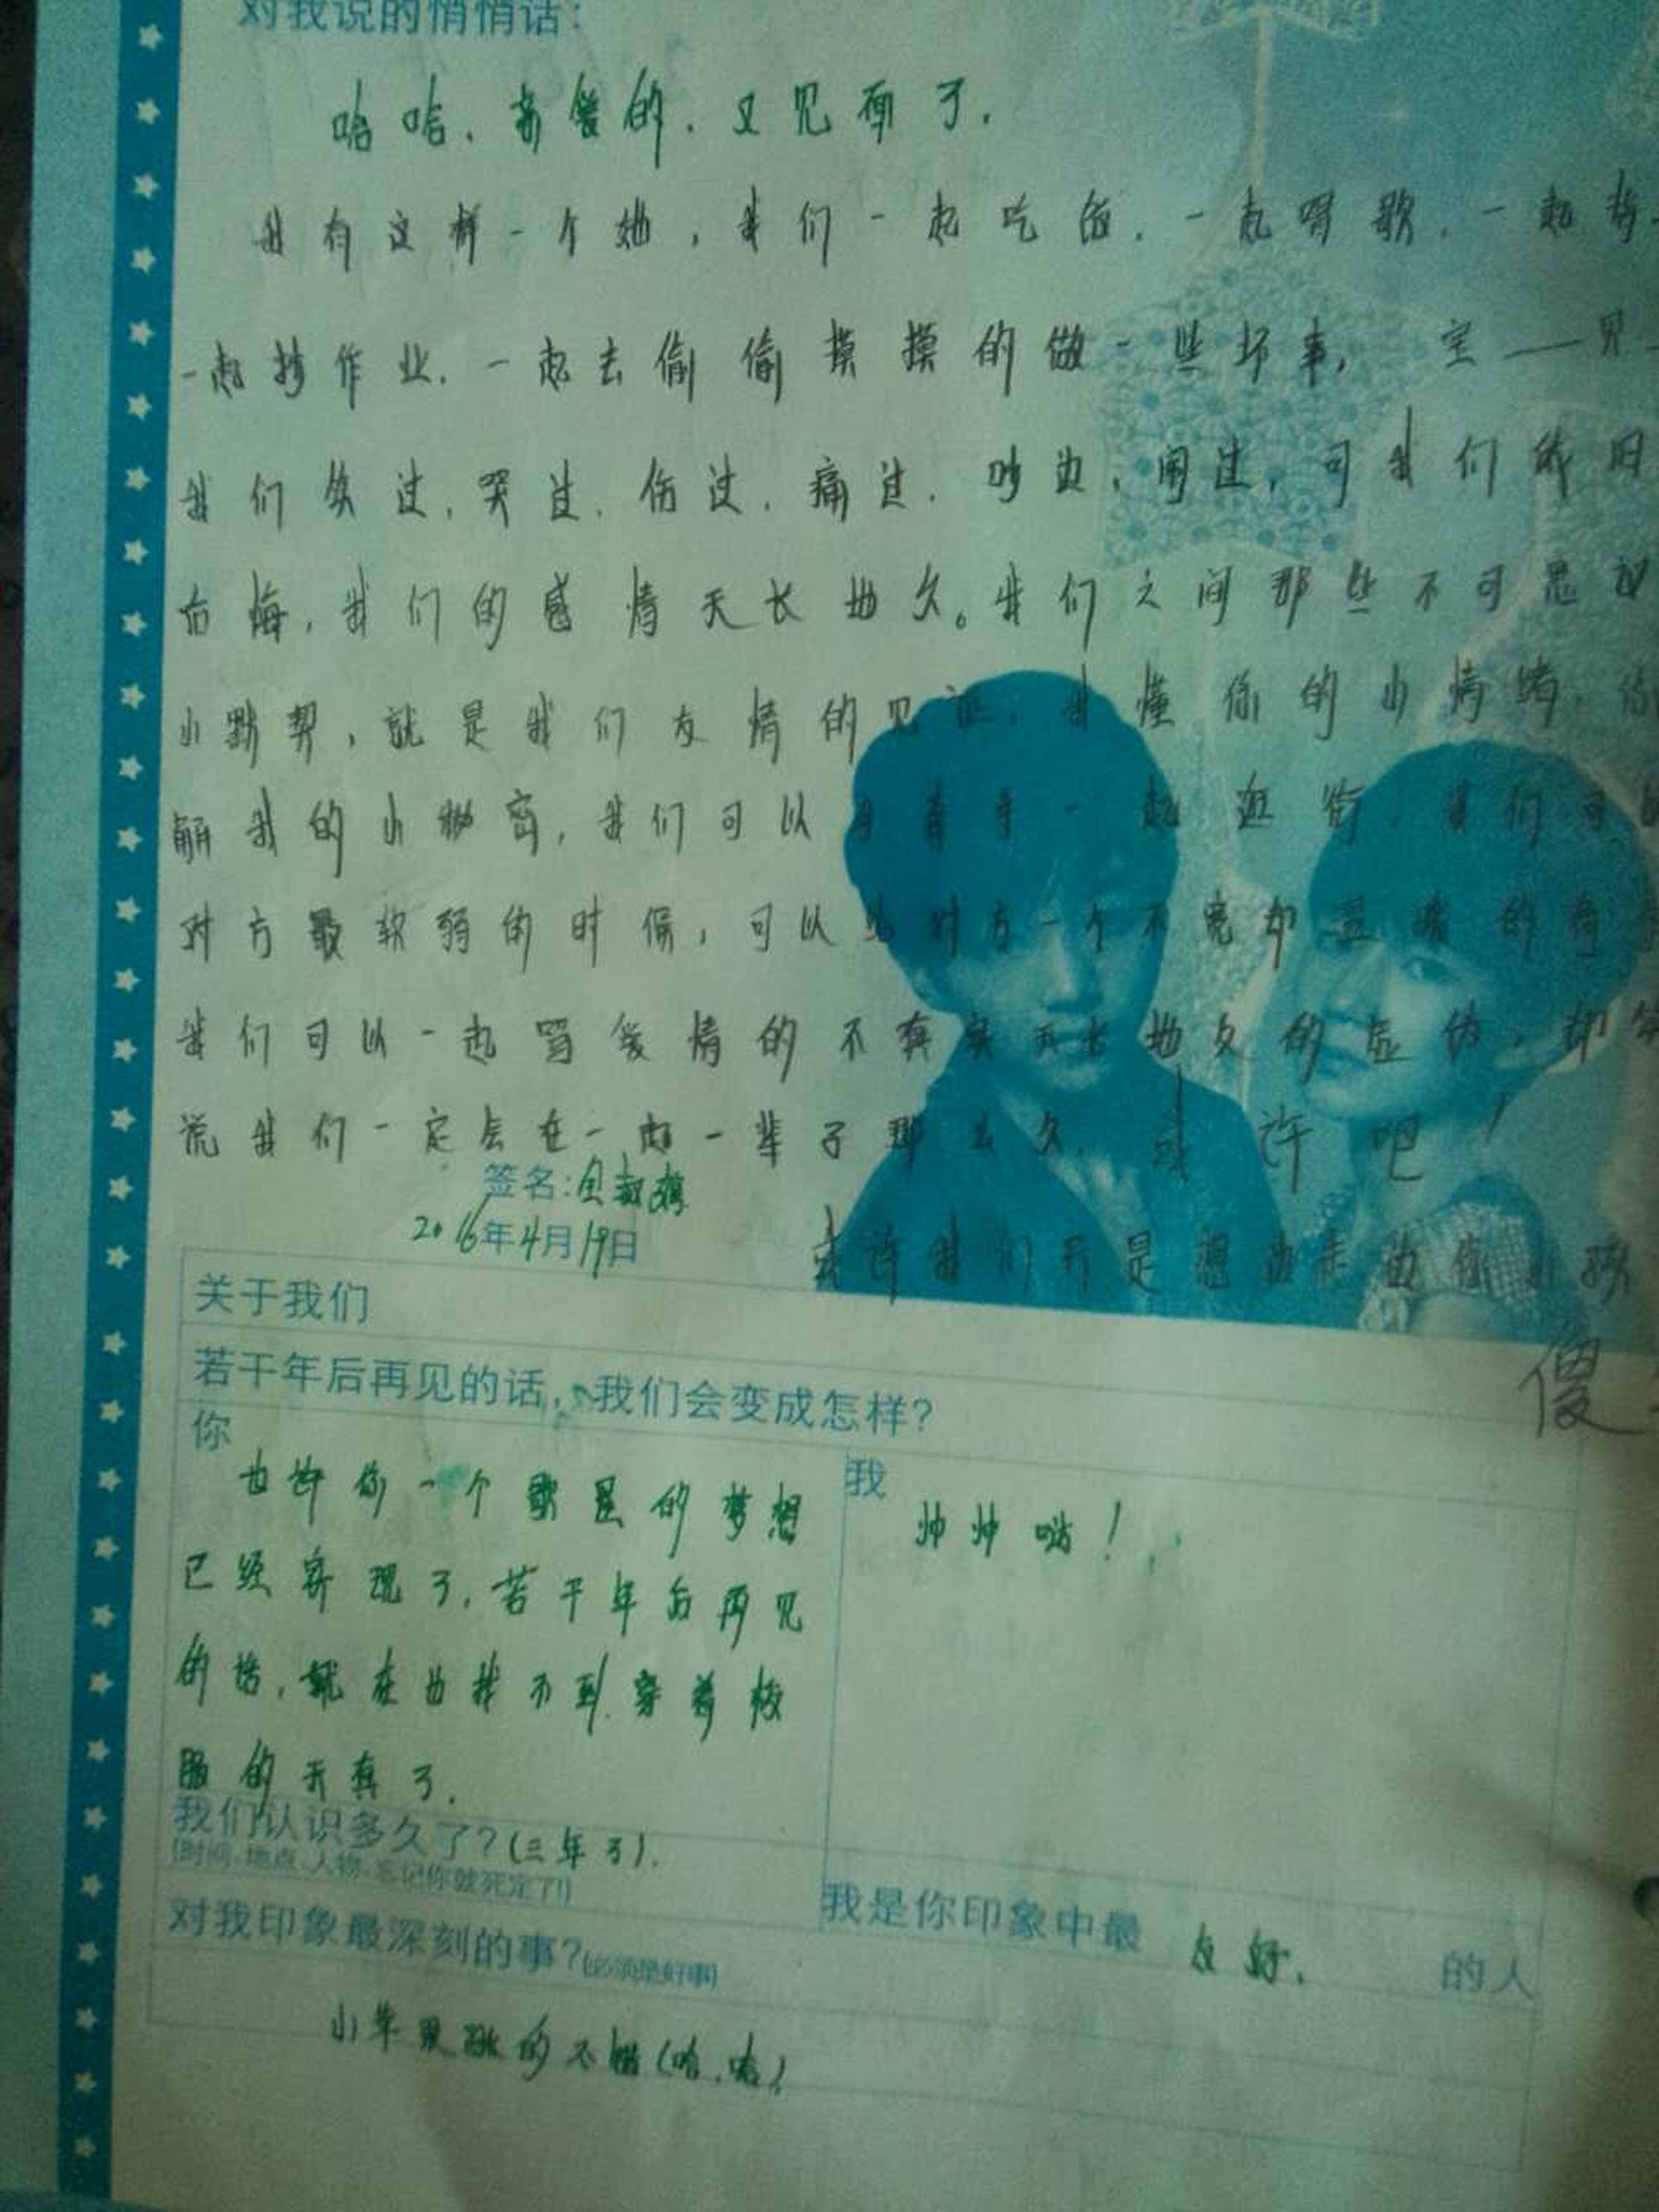 对我说的悄悄话:
哈哈.亲爱的.又见面了.
我有这样一个她,我们一起吃饭.一起唱歌.一起
一起抄作业.一起去偷偷摸摸的做一些坏事,
我们笑过.哭过.伤过.痛过.吵过.闹过.可我们依旧
后悔,我们的感情天长地久。我们之间那些不可思议
小默契,就是我们友情的见证.我懂你的小情绪.你
解我的小秘密,我们可以牵着手一起逛街.我们可以
对方最软弱的时候,可以给对方一个不宽却温暖的肩
我们可以一起骂爱情的不真实天长地久的虚伪.却
说我们一定会在一起一辈子那么久.或许吧!
签名:
2016年4月19日
或许我们不是想
傻
关于我们
若干年后再见的话,我们会变成怎样?
你
也许你一个歌星的梦想
已经实现了.若干年后再见
的话.就在也找不到.穿着校
服的天真了.
我
帅帅哒!
我们认识多久了?(三年了).
(时间、地点、人物、忘记你就死定了!)
我是你印象中最 友好. 的人
对我印象最深刻的事?(必须是好事)
小苹果跳的不错(哈.哈)